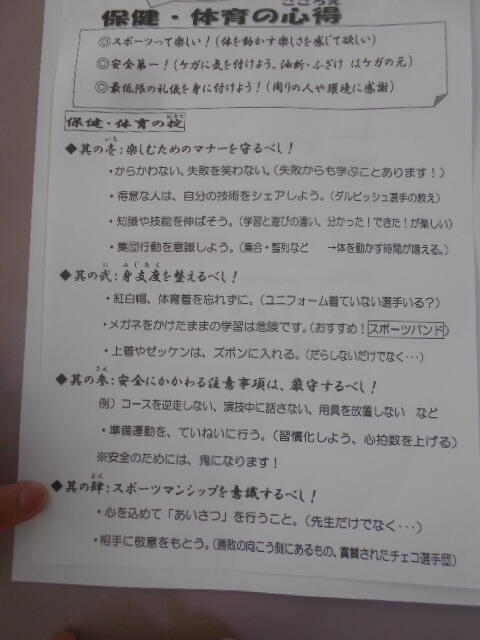 こころえ
保健・体育の心得
◎スポーツって楽しい！（体を動かす楽しさを感じて欲しい）
◎安全第一！（ケガに気を付けよう。油断・ふざけ はケガの元）
◎最低限の礼儀を身に付けよう！（周りの人や環境に感謝）
保健・体育の掟
◆其の壱：楽しむためのマナーを守るべし！
・からかわない、失敗を笑わない。（失敗からも学ぶことあります！）
・得意な人は、自分の技術をシェアしよう。（ダルビッシュ選手の教え）
・知識や技能を伸ばそう。（学習と遊びの違い、分かった！できた！が楽しい）
・集団行動を意識しよう。（集合・整列など →体を動かす時間が増える。）
◆其の弐：身支度を整えるべし！
・紅白帽、体育着を忘れずに。（ユニフォーム着ていない選手いる？）
・メガネをかけたままの学習は危険です。（おすすめ！スポーツバンド）
・上着やゼッケンは、ズボンに入れる。（だらしないだけでなく・・・）
◆其の参：安全にかかわる注意事項は、厳守するべし！
例）コースを逆走しない、演技中に話さない、用具を放置しない など
・準備運動を、ていねいに行う。（習慣化しよう、心拍数を上げる）
※安全のためには、鬼になります！
◆其の肆：スポーツマンシップを意識するべし！
・心を込めて「あいさつ」を行うこと。（先生だけでなく・・・）
・相手に敬意をもとう。（勝敗の向こう側にあるもの、賞賛されたチェコ選手団）